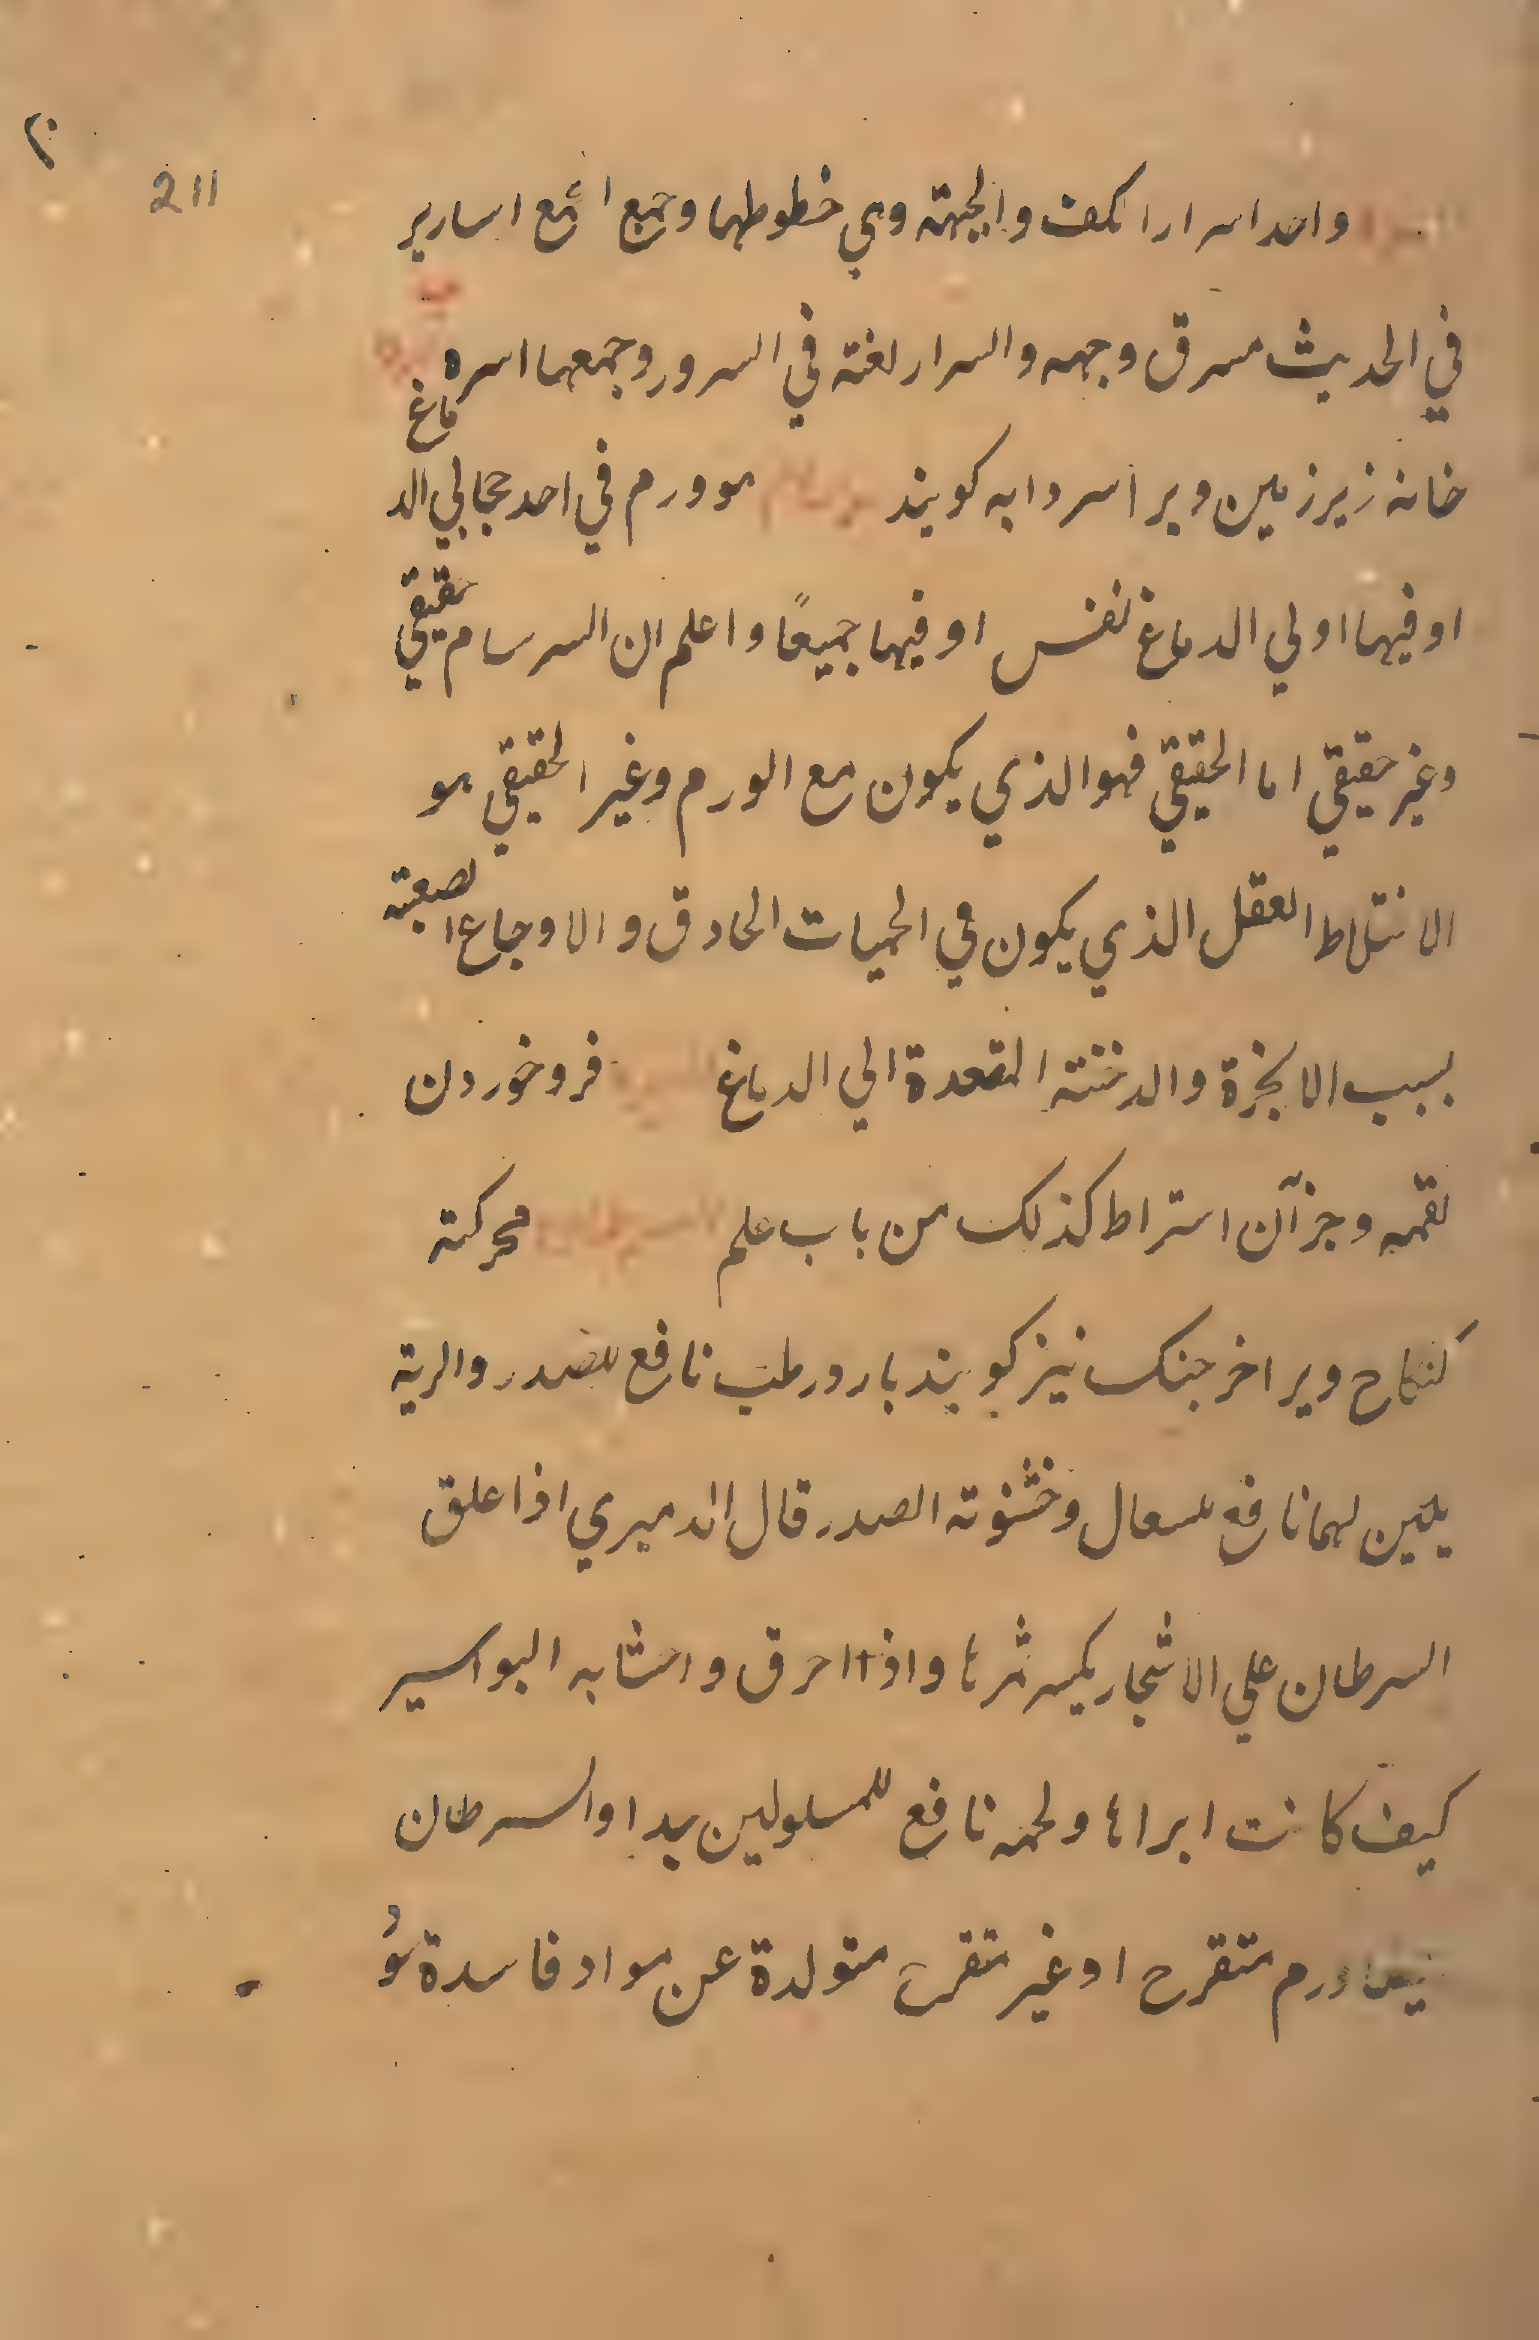 211
واحد اسرار الكف والجبهة وهي خطوطهما وجمع الجمع اسارير
في الحديث مسرق وجهه والسرار لغة في السرور وجمعها اسره
خانه زير زمين ويرا سردابه كويند سرسام هو ورم في احد حجابي الدماغ
او فيهما او لي الدماغ نفس او فيهما جميعًا واعلم ان السرسام حقيقي
وغير حقيقي اما الحقيقي فهو الذي يكون مع الورم وغير الحقيقي هو
الانتلاط العقل الذي يكون في الحميات الحادق والاوجاع الصعبة
بسبب الابخرة والدخنة المتعدة الي الدماغ فرو خوردن
لقمه وجز آن استراط كذلك من باب علم السرطان محركة
كنكاح ويرا خرجنك نيز كويند بارد رطب نافع للصدر والرية
يلين لهما نافع للسعال وخشونة الصدر قال الدميري اذا علق
السرطان علي الاشجار يكسر ثمرها واذا احرق واحشا به البواسير
كيف كانت ابراها ولحمه نافع للمسلولين بدا والسرطان
ورم متقرح او غير متقرح متولدة عن مواد فاسدة